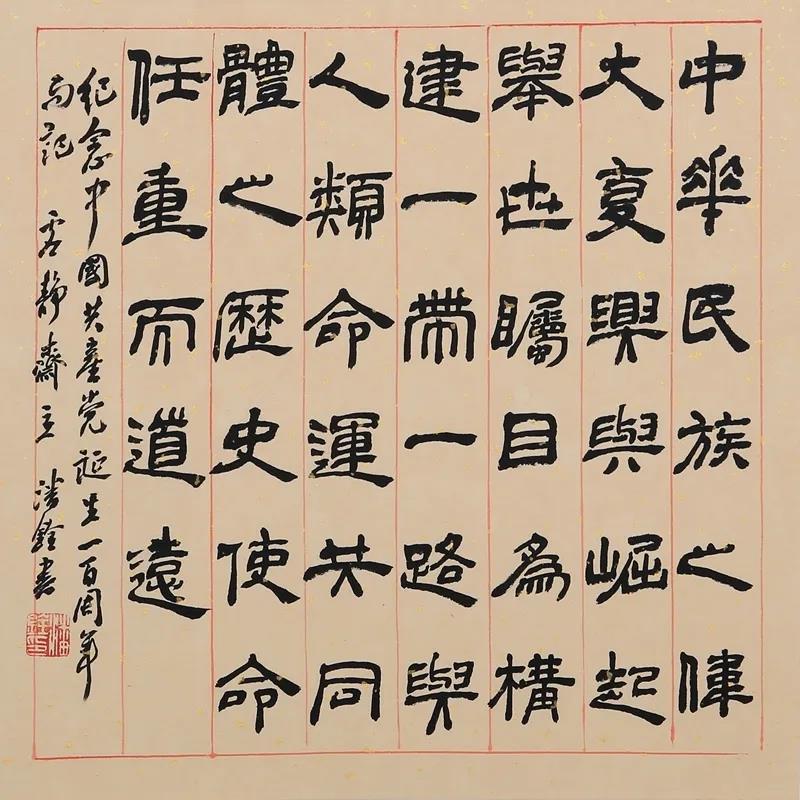 中華民族之偉
大复興與崛起
舉世矚目為構
建一帶一路與
人類命運共同
體之歷史使命
任重而道遠
紀念中國共產党誕生一百周年
記 靜齋主 潘銓書